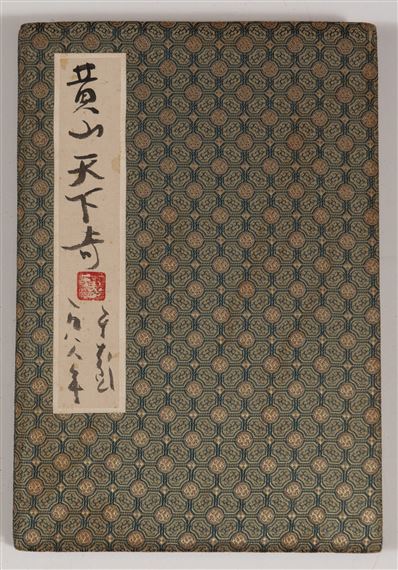 黄山天下奇
一九八八年